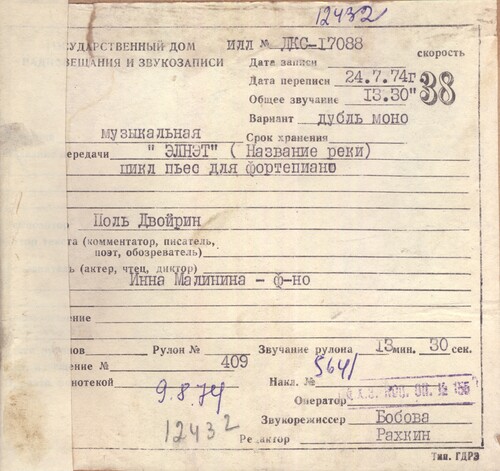 12432
СУДАРСТВЕННЫЙ ДОМ ИЛЛ № ДКС-17088
ЕЩАНИЯ И ЗВУКОЗАПИСИ
скорость
38
Дата записи
Дата переписи 24.7.74г
Общее звучание 13.30"
Вариант дубль моно
музыкальная Срок хранения
ередачи "ЭЛНЭТ" ( Название реки)
цикл пьес для фортепиано
Поль Двойрин
та (комментатор, писатель,
поэт, обозреватель)
ь (актер, чтец, диктор)
Инна Малинина - ф-но
ение
нов Рулон № Звучание рулона 13 мин. 30 сек.
ение № 409 5641
нотекой Накл. №
9.8.74 Оператор
12432 Звукорежиссер Бобова
Редактор Рахкин
Тип. ГДРЗ